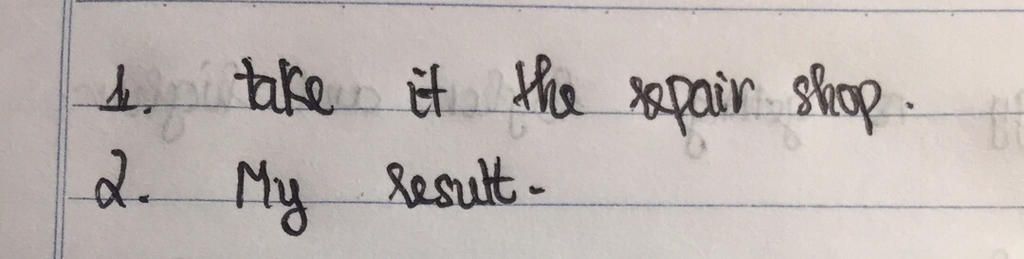 1. take it the repair shop.
2. My result.